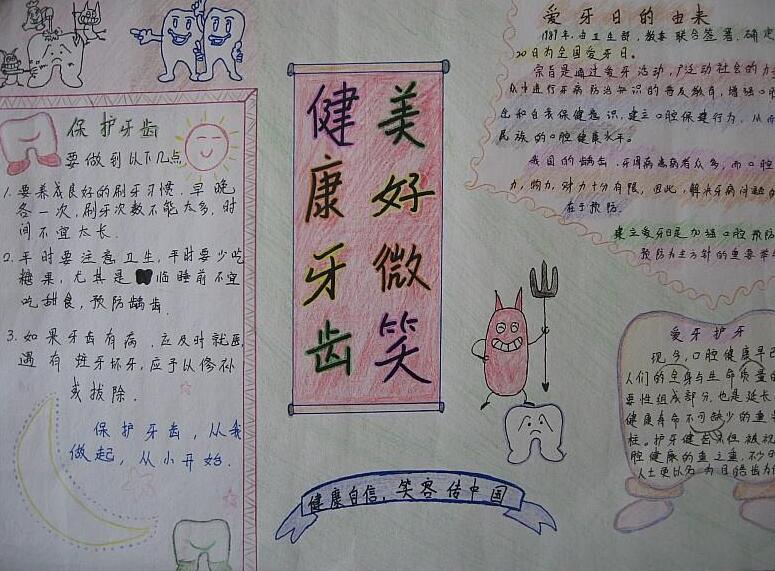 保护牙齿
要做到以下几点
1. 要养成良好的刷牙习惯.早晚
各一次,刷牙次数不能太多,时
间不宜太长.
2. 平时要注意卫生,平时要少吃
糖果,尤其是临睡前不宜
吃甜食,预防龋齿.
3. 如果牙齿有病.应及时就医
遇有蛀牙坏牙,应予以修补
或拔除.
保护牙齿,从我
做起,从小开始.
健康牙齿
美好微笑
健康自信,笑容传中国
爱牙日的由来
1989年,由卫生部,教委联合签署,确定
20日为全国爱牙日。
宗旨是通过爱牙活动,广泛动社会的力
众中进行牙病防治知识的普及教育,增强口腔
和自我保健意识,建立口腔保健行为,从而
民族的口腔健康水平。
我国的龋齿.牙周病患病者众多,而口腔
力,物力,财力十分有限,因此,解决牙病问题的
在于预防.
建立爱牙日是加强口腔预防
预防为主方针的重要举
爱牙护牙
现今,口腔健康早已
人们的全身与生命质量的
要性组成部分.也是延长
健康寿命不可缺少的重
柱。护牙健齿不但被视
腔健康的重之重,
人士更以为自皓齿为